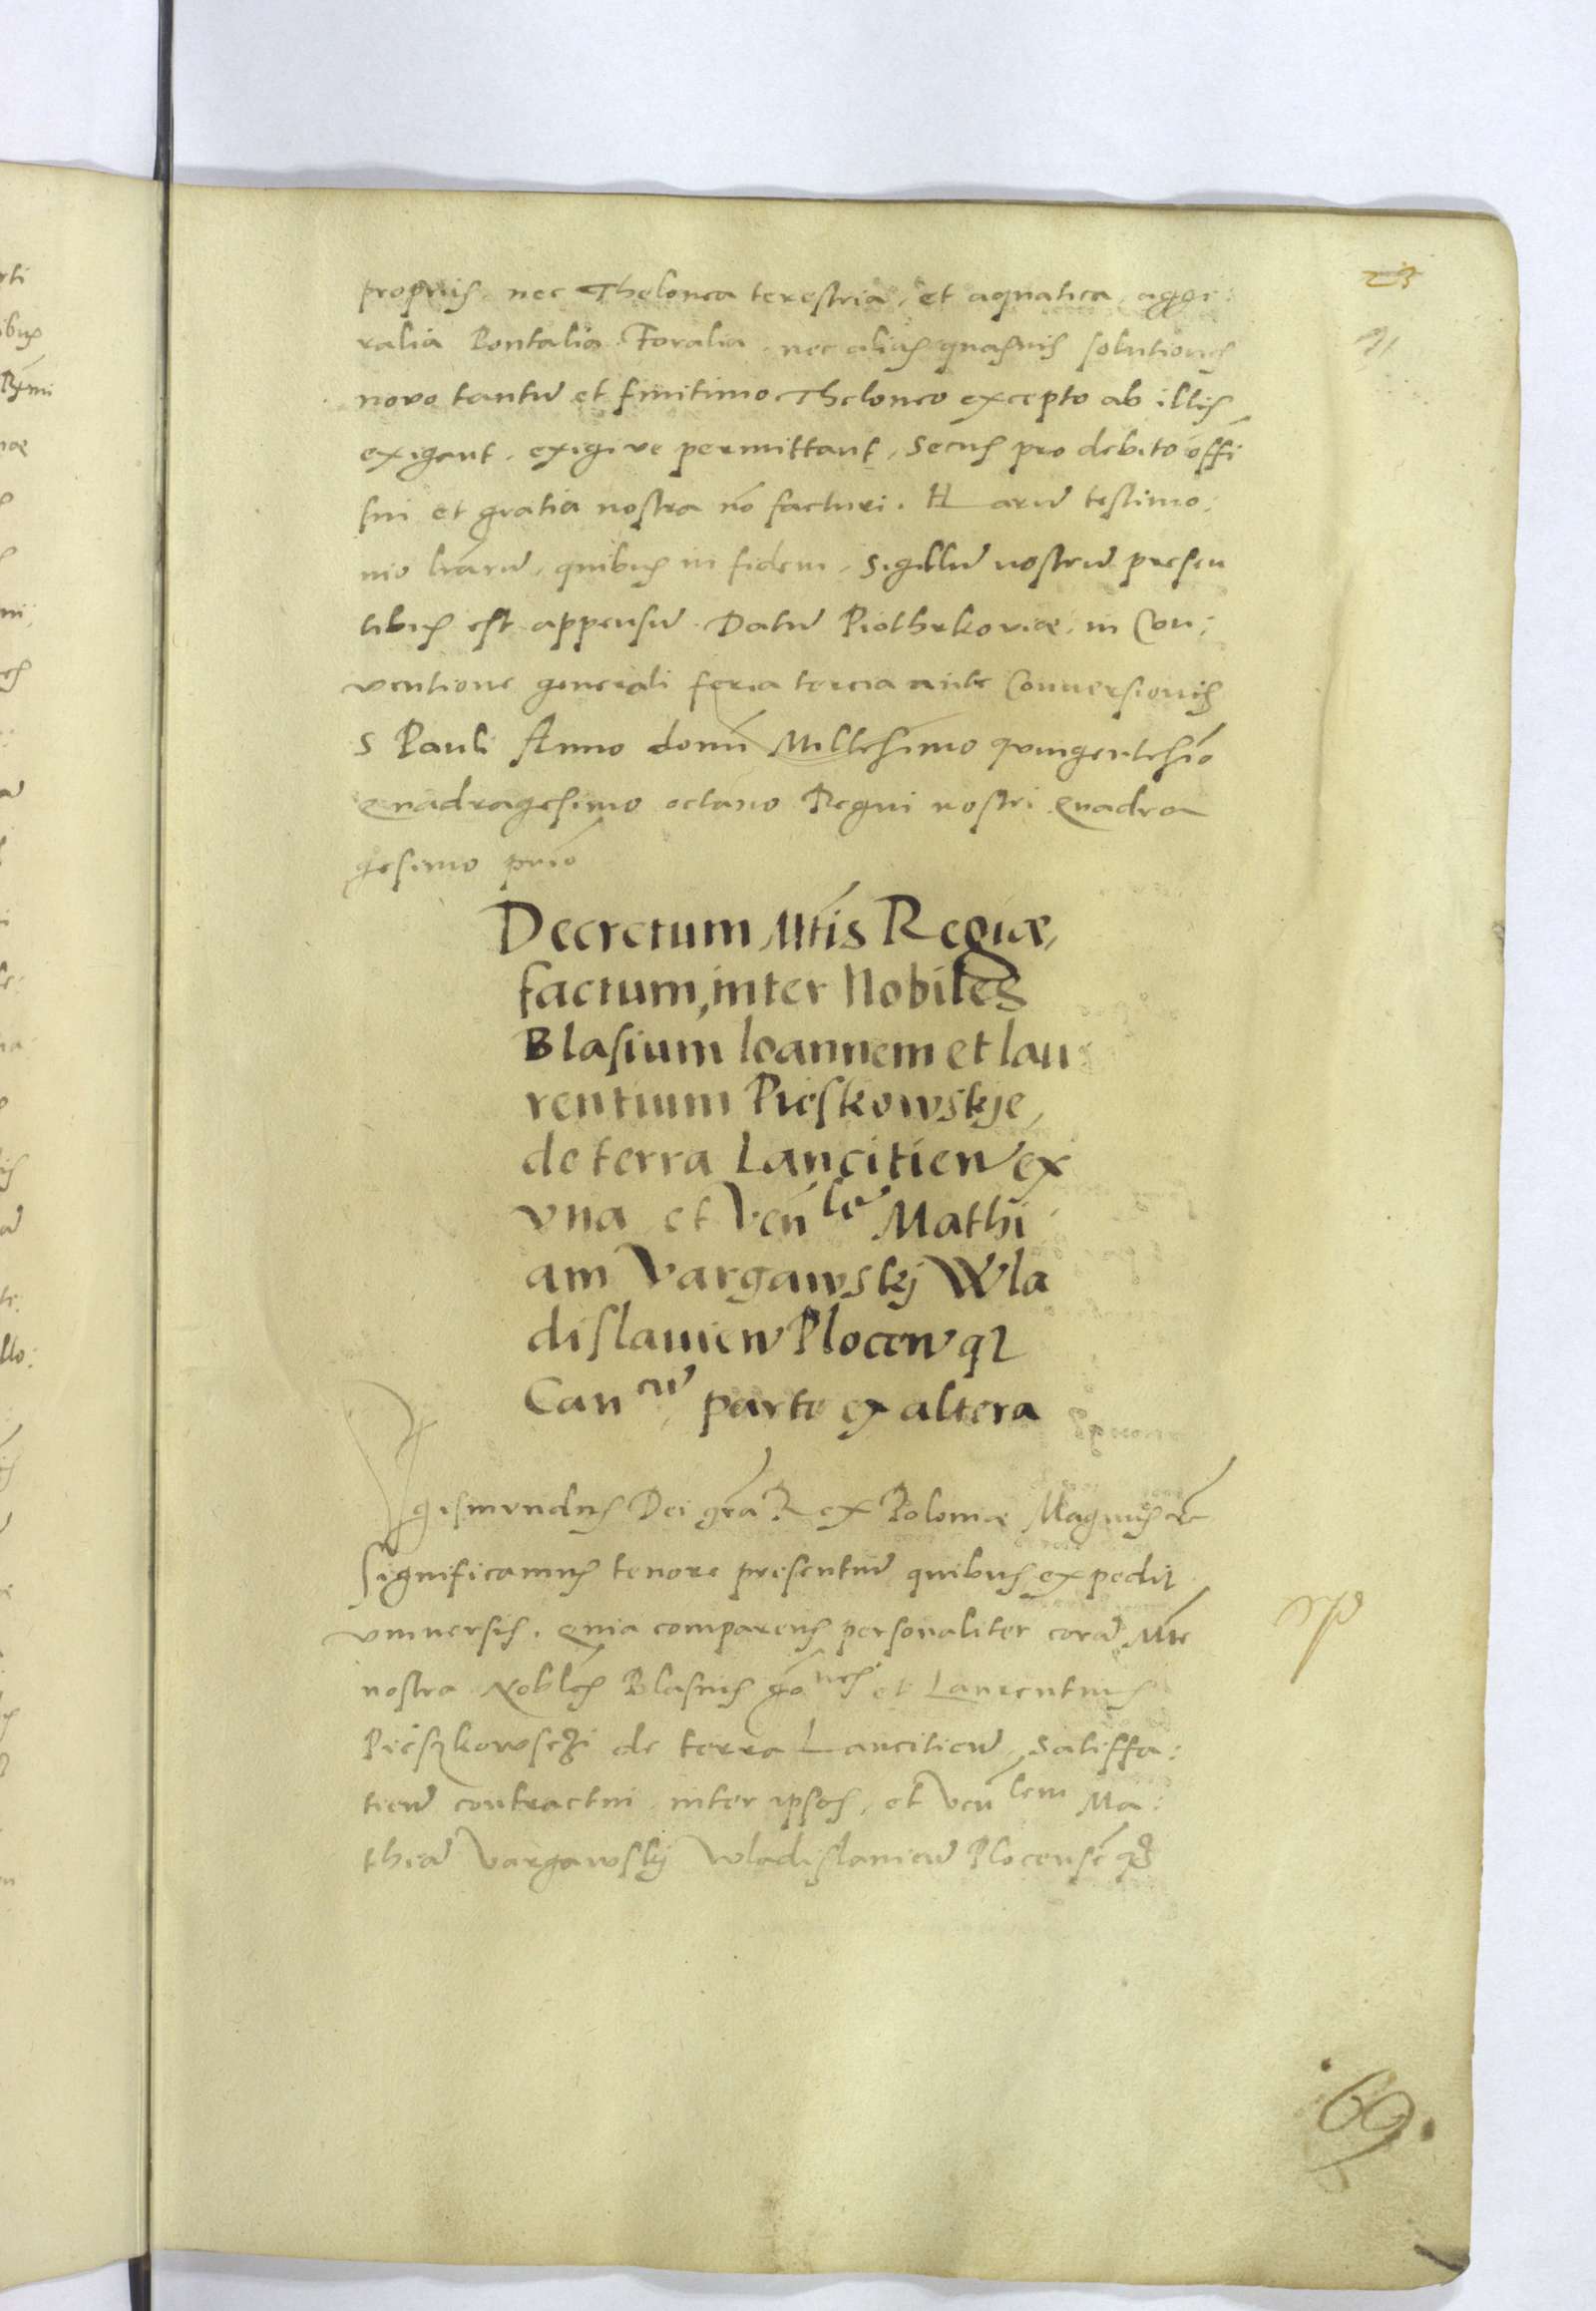 propriis, nec Thelonea terestria, et aquatica, agge:
ralia Pontalia Foralia, nec alias quasvis solutiones
novo tantu᷑ et finitimo Theloneo excepto ab illis
exigant, exigi ve permittant, Secus pro debito offi
sui et gratia nostra nō facturi. Haru᷑ testimo:
nio lr̄aru᷑, quibus in fidem, sigillu᷑ nostru᷑ presen
tibus est appensu᷑. Datu᷑ Piothrkoviæ, in Con:
ventione generali feria tercia ante Conuersionis
S Pauli Anno domī Millesimo quingentesīo
Quadragesimo octavo Regni nostri Quadra
gesimo prīo
Decretum Mtis Regiæ,
factum, inter Nobiles
Blasium Ioannem et lau:
rentium Pieskowskje,
de terra Lancitien̄ ex
vna et Ven̄le᷑ Mathi
am Vargawskj Wla
dislauien̄ Plocen̄ q3
Can cu᷑ parte ex altera
gismvndus Dei grā Rex Poloniæ Magnus etc
significamus tenore presentiu᷑ quibus expedit
vniuersis. Quia comparens personaliter cora᷑ Mte
nostra Nobles Blasius Joānes et Laurentius
Pieszkowsczi de terra Lancitien̄, satisffa:
tien̄ contractui inter ipsos, et Ven̄lem Ma:
thia᷑ Vargawskj Wladislauien̄ Plocensē q3
69.